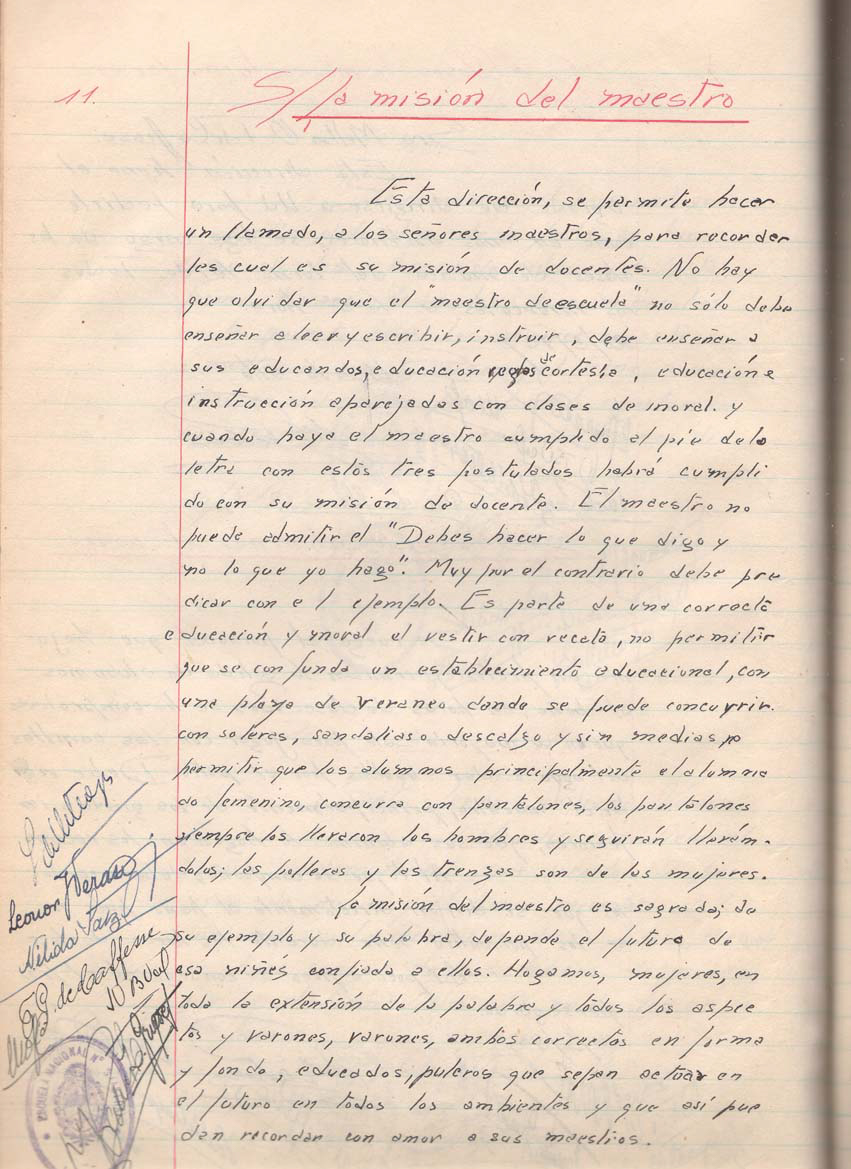 11.
S/ La misión del maestro
Esta dirección, se permite hacer
un llamado, a los señores maestros, para recordar
les cual es su misión de docentes. No hay
que olvidar que el "maestro de escuela" no sólo debe
enseñar a leer y escribir, instruir, debe enseñar a
sus educandos, educación, reglas de cortesia, educación e
instrucción aparejadas con clases de moral. y
cuando haya el maestro cumplido al pie de la
letra con estos tres postulados habrá cumpli
do con su misión de docente. El maestro no
puede admitir el "Debes hacer lo que digo y
no lo que yo hago". Muy por el contrario debe pre
dicar con el ejemplo. Es parte de una correcta
educación y moral el vestir con recato, no permitir
que se confunda un establecimiento educacional, con
una playa de veraneo donde se puede concurrir.
con soleras, sandalias o descalzo y sin medias,
permitir que los alumnos principalmente el alumna
do femenino, concurra con pantalones, los pantalones
siempre los llevaron los hombres y seguirán lleván-
dolos; las polleras y las trenzas son de las mujeres.
La misión del maestro es sagrada; de
su ejemplo y su palabra, depende el futuro de
esa niñés confiada a ellos. Hagamos, mujeres, en
toda la extensión de la palabra y todos los aspec
tos y varones, varones, ambos correctos en forma
y fondo, educados, pulcros que sepan actuar en
el futuro en todos los ambientes y que así pue
dan recordar con amor a sus maestros.
Leonor
Nélida
G. de Caffesse
ESCUELA NACIONAL Nº